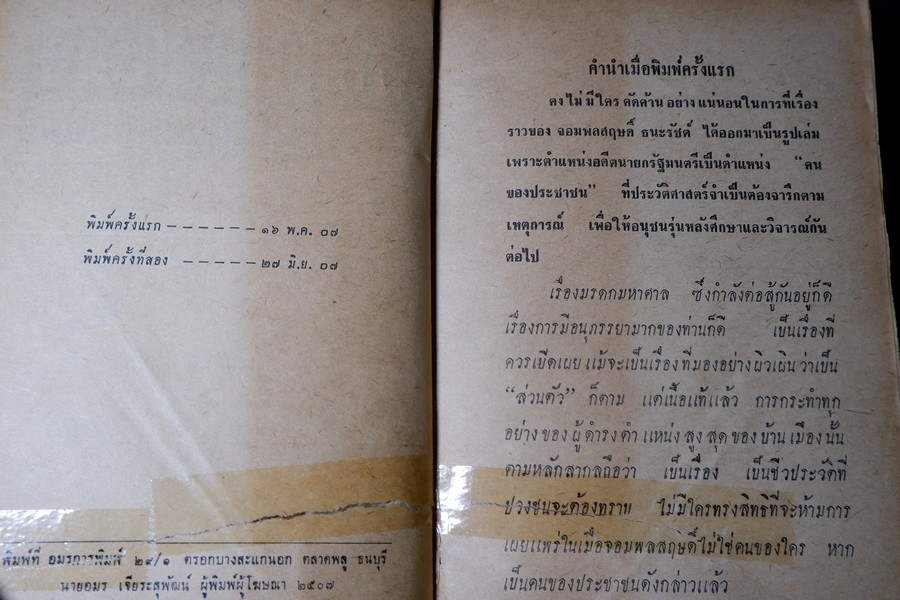 พิมพ์ครั้งแรก – – – – – – ๑๖ พ.ค. ๐๗
พิมพ์ครั้งที่สอง – – – – – ๒๗ มิ.ย. ๐๗
พิมพ์ที่ อมรการพิมพ์ ๒๔/๑ ตรอกบางสะแกนอก ตลาดพลู ธนบุรี
นายอมร เจียระสุพัฒน์ ผู้พิมพ์ผู้โฆษณา ๒๕๐๗
คำนำเมื่อพิมพ์ครั้งแรก
คงไม่มีใครคัดค้านอย่างแน่นอนในการที่เรื่อง
ราวของ จอมพลสฤษดิ์ ธนะรัชต์ ได้ออกมาเป็นรูปเล่ม
เพราะตำแหน่งอดีตนายกรัฐมนตรีเป็นตำแหน่ง "คน
ของประชาชน" ที่ประวัติศาสตร์จำเป็นต้องจารึกตาม
เหตุการณ์ เพื่อให้อนุชนรุ่นหลังศึกษาและวิจารณ์กัน
ต่อไป
เรื่องมรดกมหาศาล ซึ่งกำลังต่อสู้กันอยู่ก็ดี
เรื่องการมีอนุภรรยามากของท่านก็ดี เป็นเรื่องที่
ควรเปิดเผย แม้จะเป็นเรื่องที่มองอย่างผิวเผินว่าเป็น
"ส่วนตัว" ก็ตาม แต่เนื้อแท้แล้ว การกระทำทุก
อย่างของผู้ดำรงตำแหน่งสูงสุดของบ้านเมืองนั้น
ตามหลักสากลถือว่า เป็นเรื่อง เป็นชีวประวัติที่
ปวงชนจะต้องทราบ ไม่มีใครทรงสิทธิที่จะห้ามการ
เผยแพร่ในเมื่อจอมพลสฤษดิ์ไม่ใช่คนของใคร หาก
เป็นคนของประชาชนดังกล่าวแล้ว